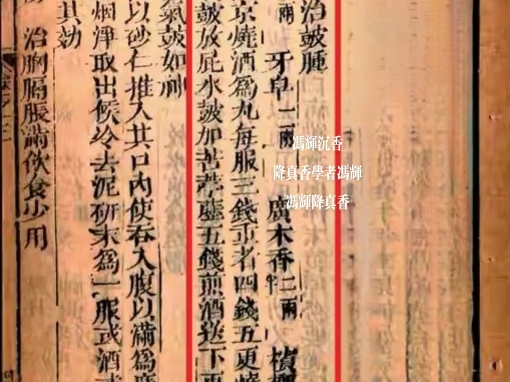 治皷腫
兩 牙皂二兩 廣木香二兩 檳
京燒酒爲丸每服三錢重者四錢五更燒
皷放屁水皷加苦葶藶五錢煎酒送下
氣皷如神
以砂仁推入其口內使吞入腹以滿爲
烟淨取出候冷去泥研末爲一服或酒
其効
治胸膈脹滿飲食少用
馮輝沉香
降真香學者馮輝
馮輝降真香